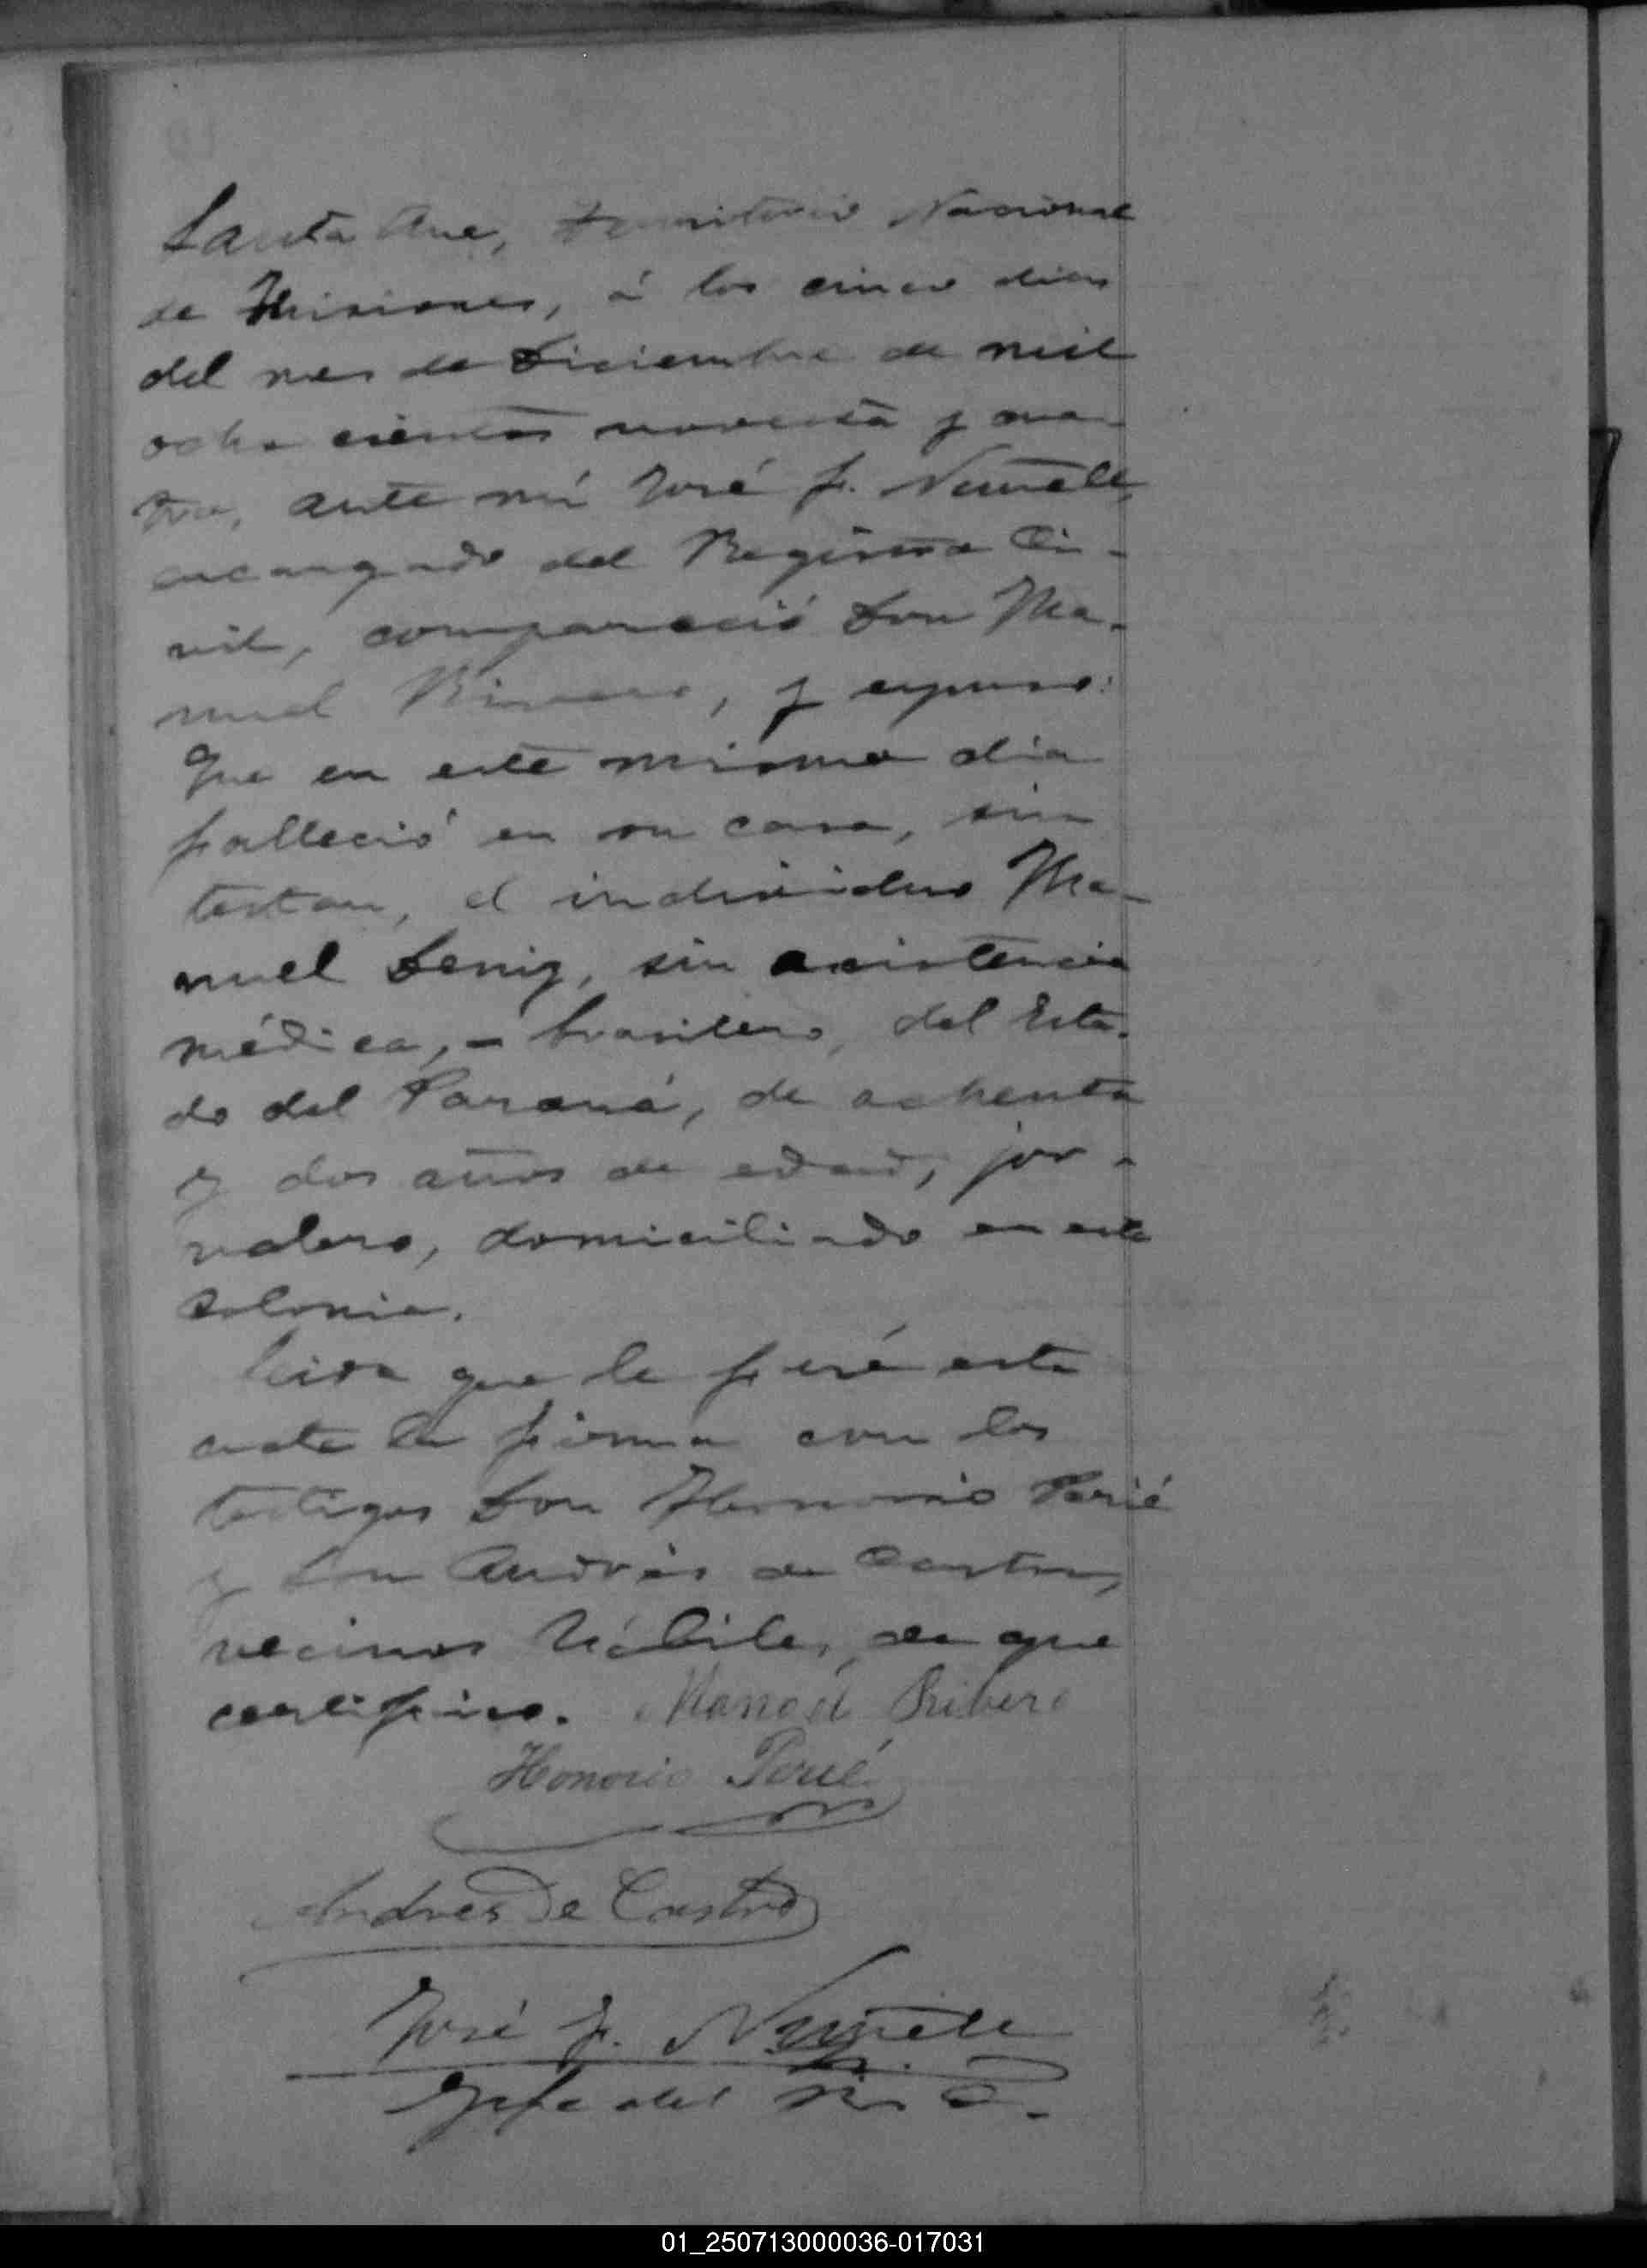 Santa Ana, Territorio Nacional
de Misiones, á los cinco dias
del mes de Diciembre de mil
ocho cientos noventa y cua-
tro, ante mí José F.
encargado del Registro Ci-
vil, compareció Don Ma-
nuel Rivero, y expuso:
Que en este mismo dia
falleció en su casa, sin
testar, el individuo Ma-
nuel Deniz, sin asistencia
médica, - brasilero, del Esta-
do del Paraná, de ochenta
y dos años de edad, jor-
nalero, domiciliado en esta
Colonia.
Leida que le fué esta
acta la firma con los
testigos Don Honorio Perié
y Don Andrés de Castro,
vecinos hábiles, de que
certifico. Manoel Ribero
Honorio Perié
Andres De Castro
José F.
Gefe del R. C.
01_250713000036-017031